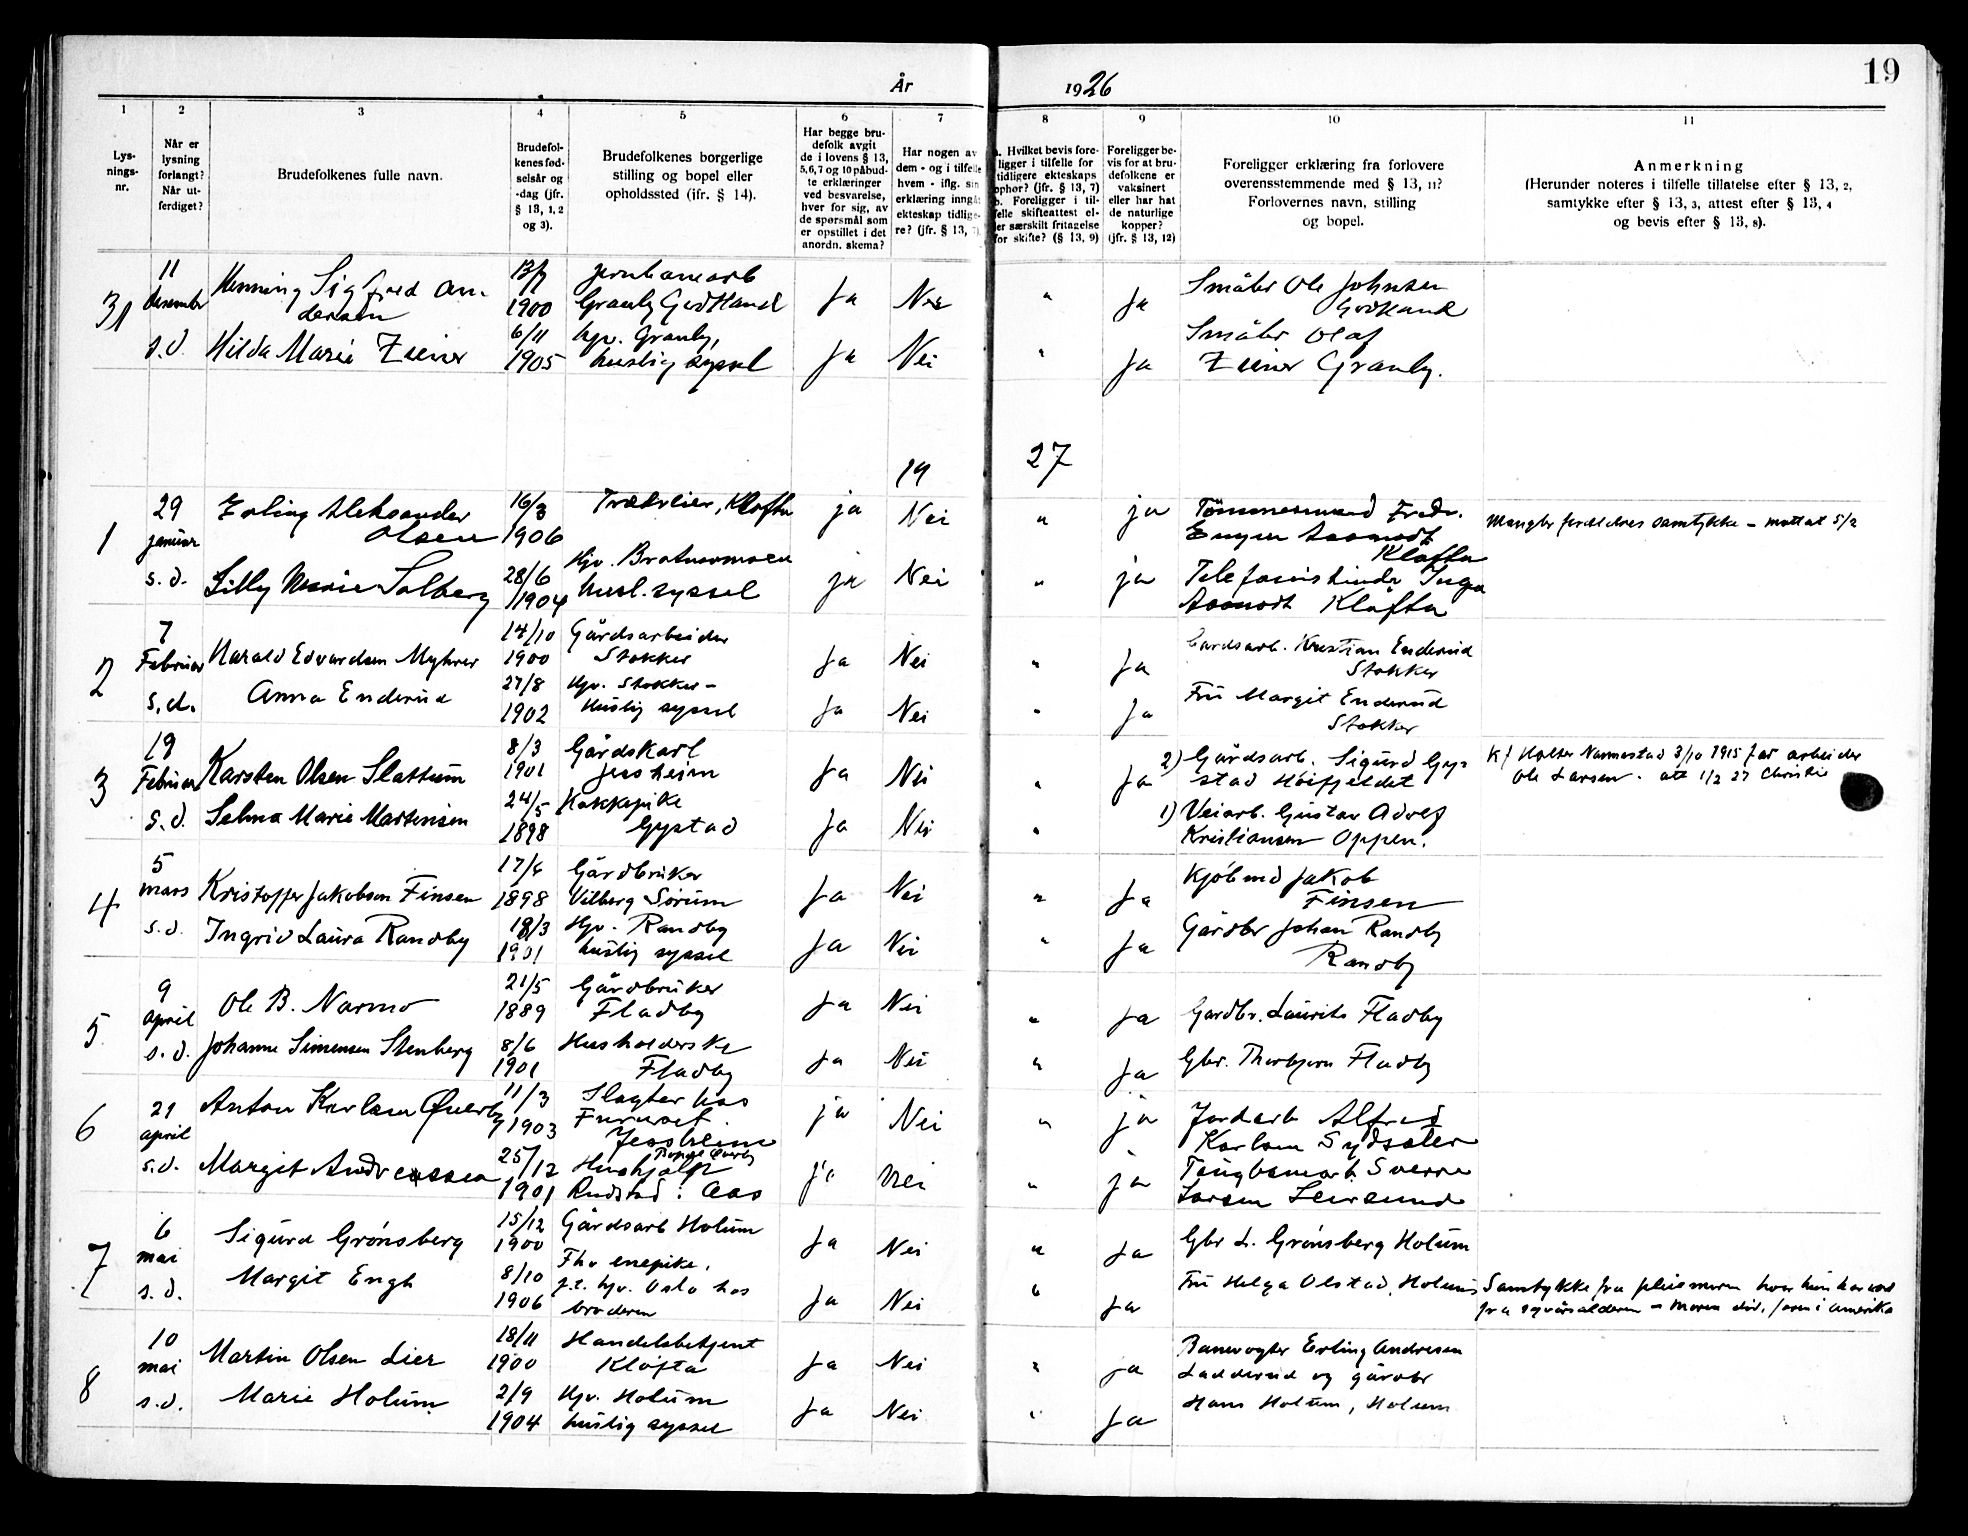 19
År 1926
1 2 3 4 5 6 7 8 9 10 11
Lys-
nings-
nr.
Når er
lysning
forlangt?
Når ut-
ferdiget?
Brudefolkenes fulle navn.
Brudefol-
kenes fød-
selsår og
-dag (jfr.
§ 13, 1, 2
og 3).
Brudefolkenes borgerlige
stilling og bopel eller
opholdssted (ifr. § 14).
Har begge bru-
defolk avgit
de i lovens § 13,
5, 6, 7 og 10 påbud-
te erklæringer
ved besvarelse,
hver for sig, av
de spørsmål som
er opstillet i det
anordn. skema?
Har nogen av
dem - og i tilfelle
hvem - iflg. sin
erklæring inngå
ekteskap tidlige-
re? (jfr. § 13, 7)
a. Hvilket bevis fore-
ligger i tilfelle for
tidligere ekteskaps
ophør? (jfr. § 13, 7)
b. Foreligger i til-
felle skifteattest el-
ler særskilt fritagelse
for skifte? (§ 13, 9)
Foreligger be-
vis for at bru-
defolkene er
vaksinert
eller har hat
de naturlige
kopper?
(jfr. § 13, 12)
Foreligger erklæring fra forlovere
overensstemmende med § 13, 11?
Forlovernes navn, stilling
og bopel.
Anmerkning
(Herunder noteres i tilfelle tillatelse efter § 13, 2,
samtykke efter § 13, 3, attest efter § 13, 4
og bevis efter § 13, 8).
31
11
desember
s.d.
Henning Sigfred An-
dersen
Hilda Marie Zeiner
13/7
1900
6/11
1905
jernbanearb
Granby
hjv. Granby,
huslig syssel
Ja Nei " Ja
Ja Nei " Ja
Småbr Ole Johnsen
Småbr Olaf
Zeiner Granby.
19 27
1
29
januar
s.d.
Erling Aleksander
Olsen
Lilly Marie Solberg
16/3
1906
28/6
1904
Kløfta
Hjv.
husl. syssel
ja Nei " ja
ja Nei " ja
Tømmermand Fredr.
Kløfta
Telefonistinde Inga
Kløfta
Mangler forældres samtykke – mottat 5/2
2
7
Februar
s.d.
Harald Edvardsen Myhrer
Anna Enderud
14/10
1900
27/8
1902
Gårdsarbeider
Stokker
Hjv. Stokker –
Huslig syssel
Ja Nei " Ja
Ja Nei " Ja
Gardsarb. Kristian Enderud
Stokker
Fru Margit Enderud
Stokker
3
19
Februar
s.d.
Karsten Olsen Slattum
Selma Marie Martinsen
8/3
1901
24/5
1898
Gårdskarl
Jessheim
Kokkepike
Gystad
Ja Nei " Ja
Ja Nei "
2) Gårdsarb. Sigurd Gy-
stad Høifjeldet
1) Veiarb. Gustav Adolf
Kristiansen Oppen.
K/ Holter Nannestad 3/10 1915 far arbeider
Ole Larsen. att 1/2 27 Christie
4
5
mars
s.d.
Kristoffer Jakobsen Finsen
Ingrid Laura Randby
17/6
1898
18/3
1901
Gårdbruker
Vilberg Sørum
Hjv. Randby
huslig syssel
Ja Nei " Ja
Ja Nei " Ja
Kjøbmd Jakob
Finsen
Gårdbr Johan Randby
Randby
5
9
april
s.d.
Ole B. Narmo
Johanne Simensen Stenberg
21/5
1889
8/6
1901
Gårdbruker
Fladby
Husholderske
Fladby
Ja Nei " Ja
Ja Nei " Ja
Gardbr. Laurits Fladby
Gbr. Thorbjørn Fladby
6
21
april
s.d.
Anton Karlsen Øverby
Margit Andreassen
11/3
1903
25/12
1901
Slagter hos
Furuset
Jessheim
Hushjælp
Rudstad i Aas
ja Nei " ja
ja Nei " ja
Jordarb Alfred
Karlsen
Sverre
Larsen Leirsund
7
6
mai
s.d.
Sigurd Grønsberg
Margit Engh
15/12
1900
8/10
1906
Gårdsarb Holum
enepike.
f.t. hjv. Oslo hos
broderen
Ja Nei " Ja
Ja Nei " Ja
Gbr L. Grønsberg Holum
Fru Helga Olstad, Holum
Samtykke fra pleiemoren hvor hun har vært
fra syvårsalderen – Moren død, faren i Amerika
8
10
mai
s.d.
Martin Olsen Lier
Marie Holum
18/11
1900
2/9
1904
Handelsbetjent
Kløfta
Hjv. Holum
huslig syssel
Ja Nei " ja
Ja Nei " Ja
Banevogter Erling Andresen
Ladderud og gårdbr
Hans Holum, Holum